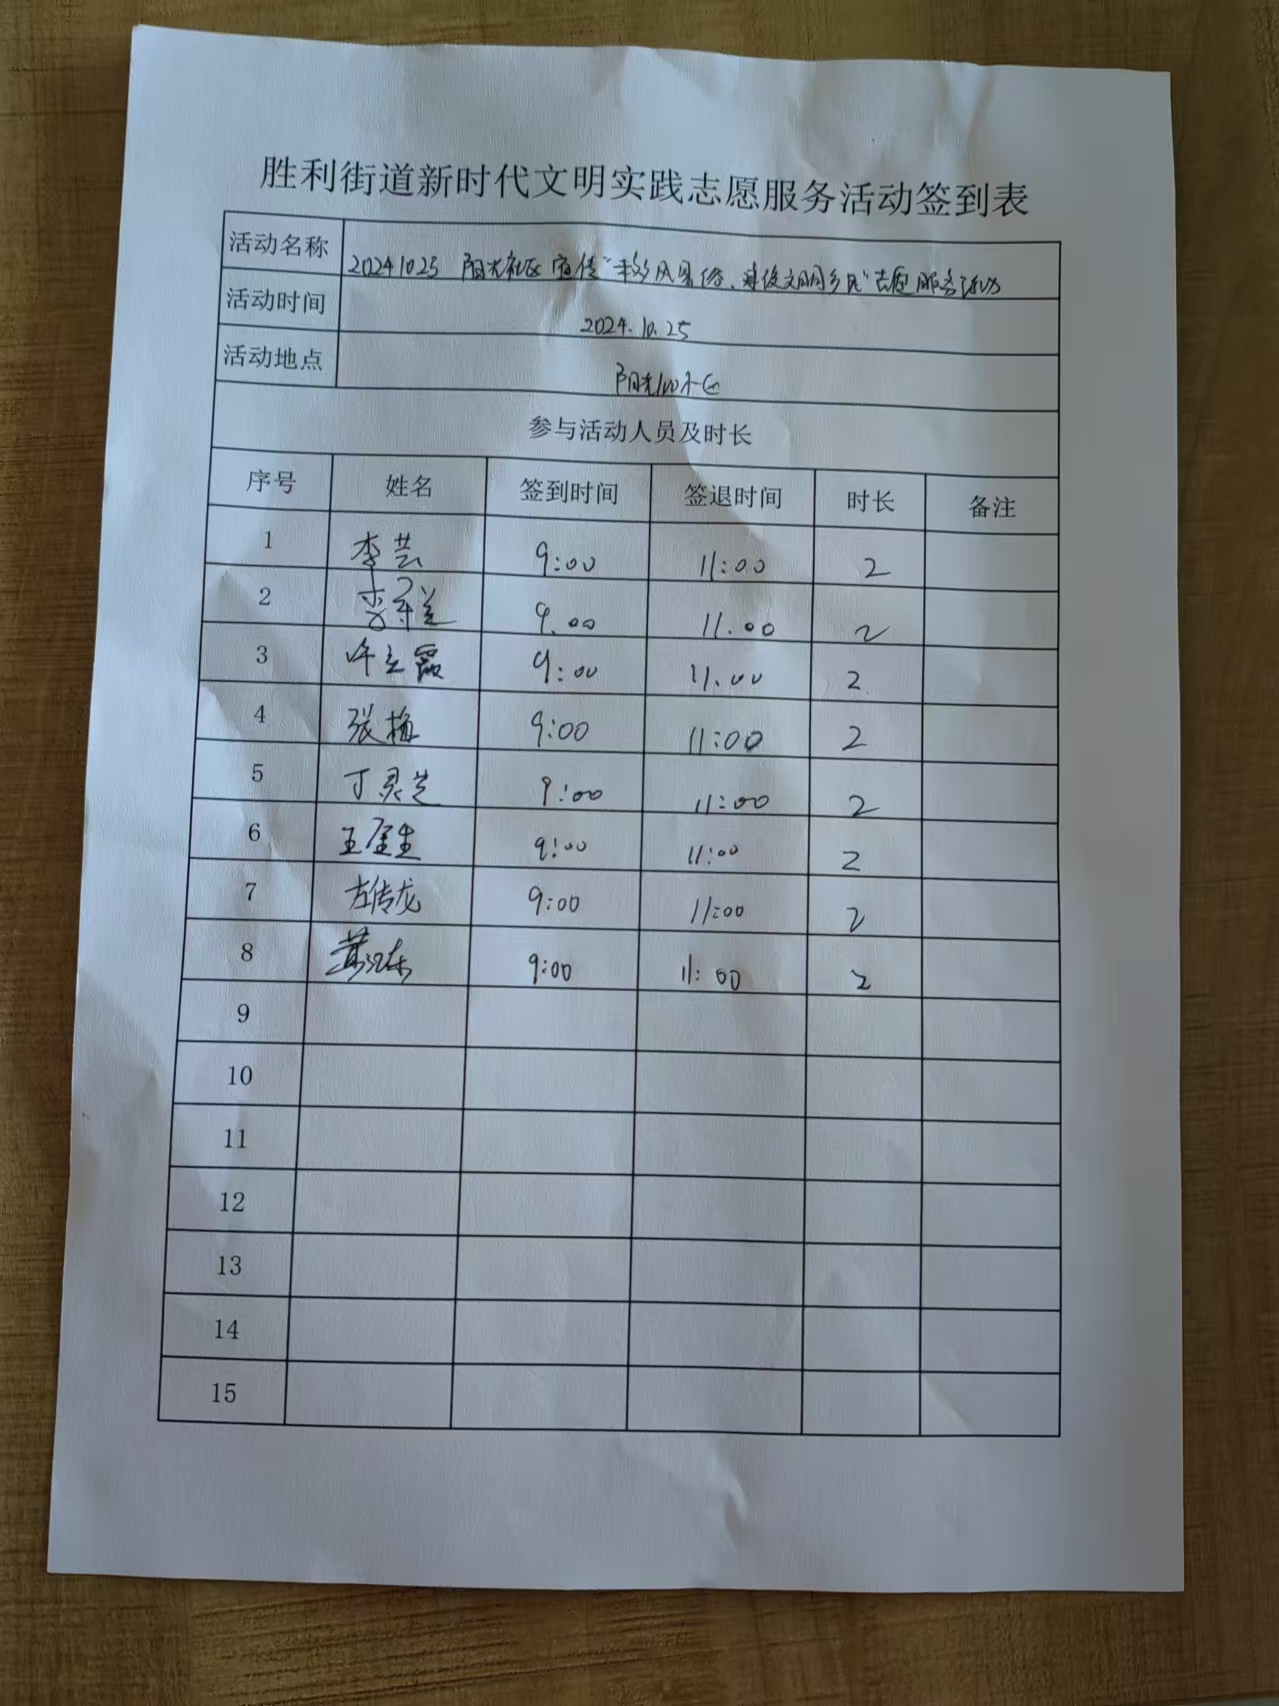 胜利街道新时代文明实践志愿服务活动签到表
活动名称 20241025 阳光社区宣传“移风易俗、建设文明乡风”志愿服务活动
活动时间 2024.10.25
活动地点 阳光
参与活动人员及时长
序号 姓名 签到时间 签退时间 时长 备注
1 李芸 9:00 11:00 2
2 李 兰 9.00 11.00 2
3 许立霞 9:00 11.00 2
4 张梅 9:00 11:00 2
5 丁灵芝 9:00 11:00 2
6 王金生 9:00 11:00 2
7 左传龙 9:00 11:00 2
8 黄 东 9:00 11:00 2
9
10
11
12
13
14
15